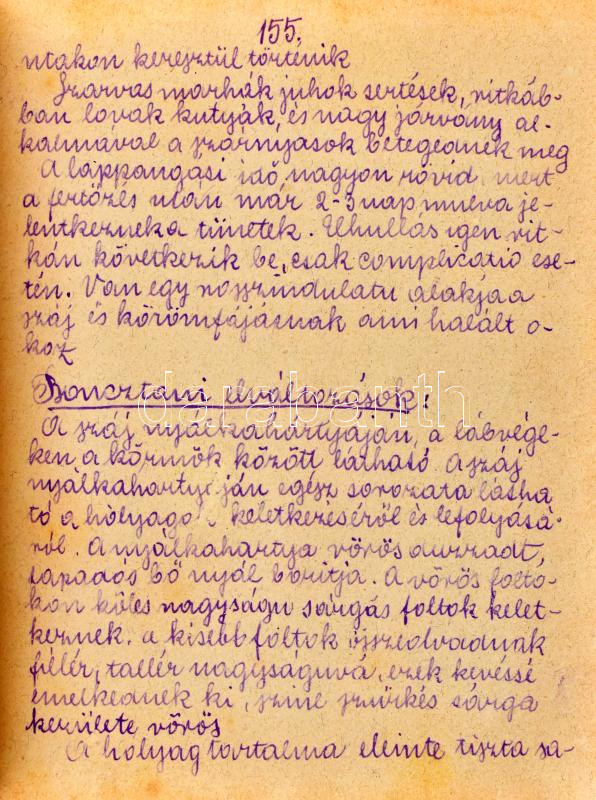 155.
utakon keresztül történik
Szarvasmarhák juhok sertések, ritkáb-
ban lovak kutyák, és nagy járvány al-
kalmával a szárnyasok betegednek meg
A lappangási idő nagyon rövid, mert
a fertőzés után már 2-3 nap mulva je-
lentkeznek a tünetek. Elhullás igen rit-
kán következik be, csak complicatio ese-
tén. Van egy rosszindulatu alakja a
száj és körömfájásnak ami halált o-
koz
Boncztani elváltozások:
A száj nyálkahártyáján, a lábvége-
ken a körmök között látható. A száj
nyálkahartyáján egész sorozata látha
tó a hólyagok keletkezéséről és lefolyásá-
ról. A nyálkahartya vörös duzzadt,
tapadós bő nyál boritja. A vörös folto-
kon köles nagyságu sárgás foltok kelet-
keznek. a kisebb foltok összeolvadnak
fillér, tallér nagyságuvá, ezek kevéssé
emelkednek ki, szine szürkés sárga
kerülete vörös
A hólyag tartalma eleinte tiszta sa-
darabanth